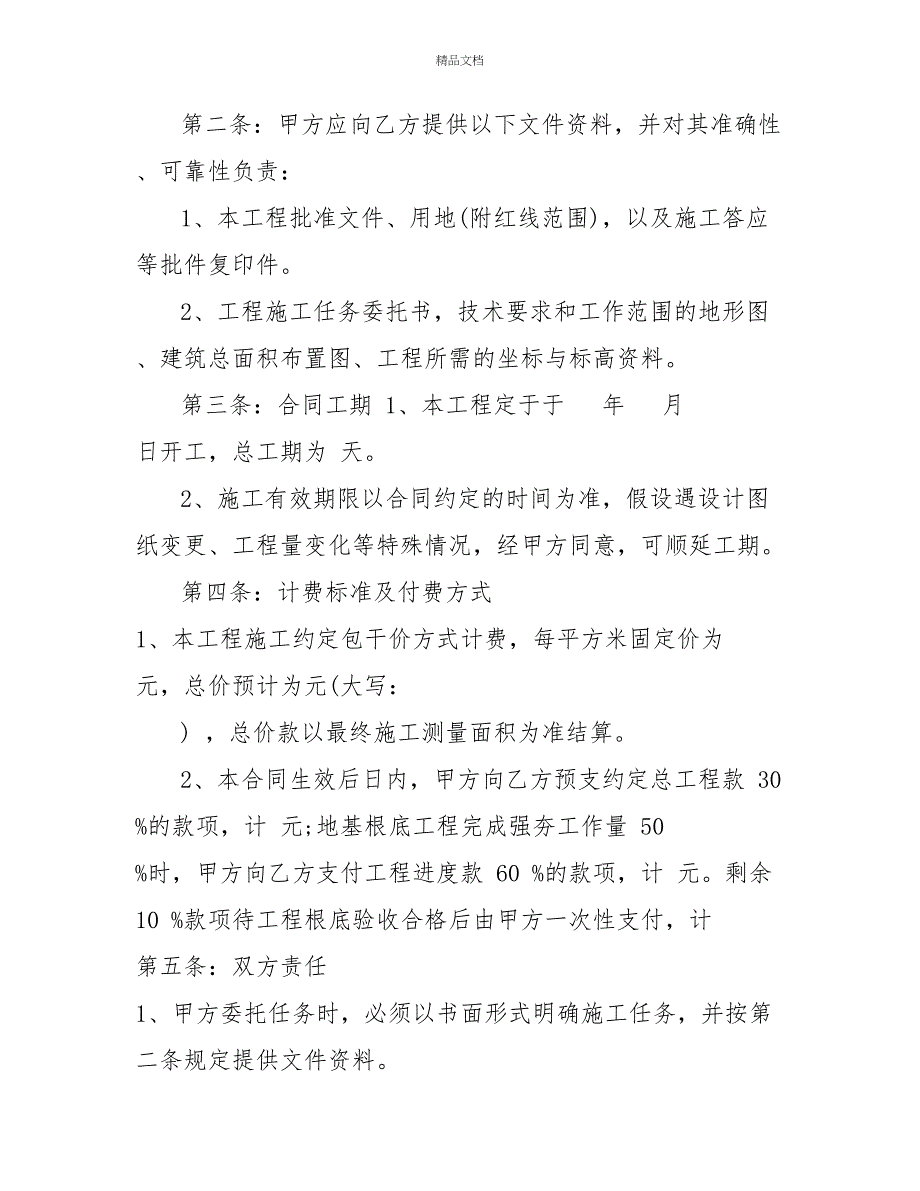 精品文档
第二条：甲方应向乙方提供以下文件资料，并对其准确性
、可靠性负责：
1、本工程批准文件、用地(附红线范围)，以及施工答应
等批件复印件。
2、工程施工任务委托书，技术要求和工作范围的地形图
、建筑总面积布置图、工程所需的坐标与标高资料。
第三条：合同工期 1、本工程定于于 年 月
日开工，总工期为 天。
2、施工有效期限以合同约定的时间为准，假设遇设计图
纸变更、工程量变化等特殊情况，经甲方同意，可顺延工期。
第四条：计费标准及付费方式
1、本工程施工约定包干价方式计费，每平方米固定价为
元，总价预计为元(大写：
) ，总价款以最终施工测量面积为准结算。
2、本合同生效后日内，甲方向乙方预支约定总工程款 30
%的款项，计 元;地基根底工程完成强夯工作量 50
%时，甲方向乙方支付工程进度款 60 %的款项，计 元。剩余
10 %款项待工程根底验收合格后由甲方一次性支付，计
第五条：双方责任
1、甲方委托任务时，必须以书面形式明确施工任务，并按第
二条规定提供文件资料。